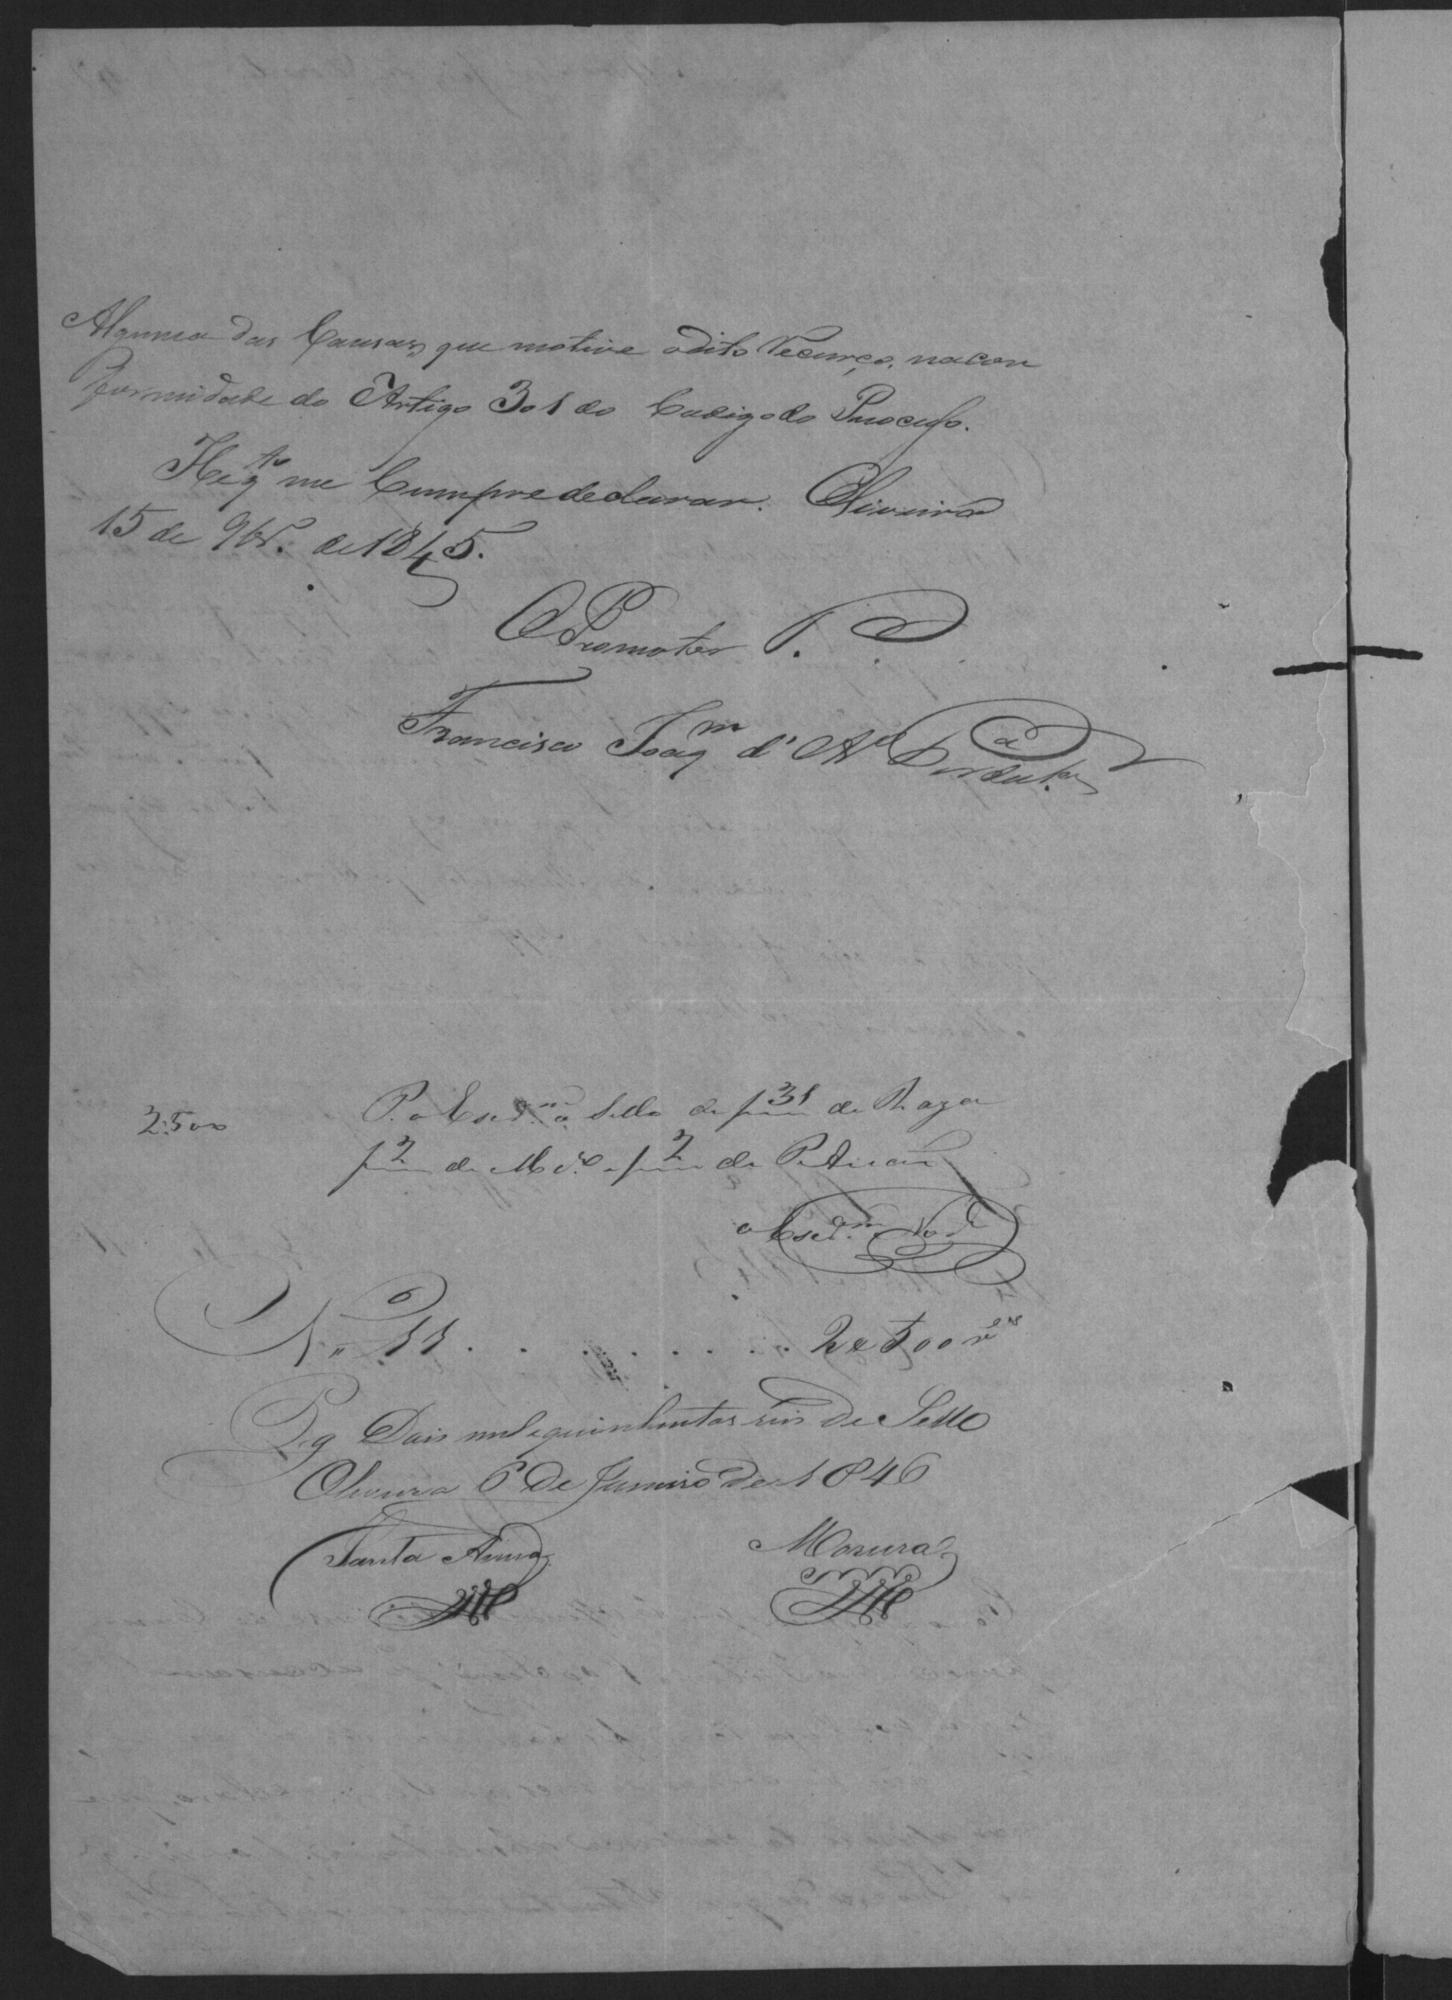 Alguma das Causas, que motive odito Recurço, nacon
formidade do Artigo 301 do Codigo do Processo.
He q.to me Cumpre declarar. Oliveira
15 de 9br.º de 1845.
O Promotor P.
Francisco Joaq.m d'
2:500
P. o Esc.m o Sello de f. 31 de Raza
f. 2 de e f. 2 de
o Esc.m
N.º 11 . . . . . . . . . 2#500 r.es
Pg Dois mil equinhentos reis de Sello
Oliveira 6 de Janeiro de 1846
Santa Anna
Moreira